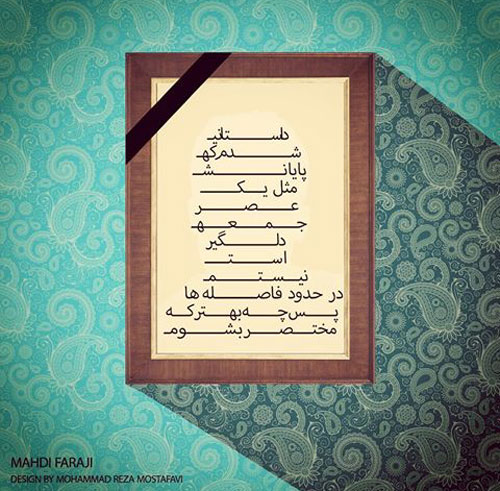 داستانی
شدم که
پایانش
مثل یک
عصر
جمعه
دلگیر
است
نیستم
در حدود فاصله ها
پس چه بهتر که
مختصر بشوم
MAHDI FARAJI
DESIGN BY MOHAMMAD REZA MOSTAFAVI